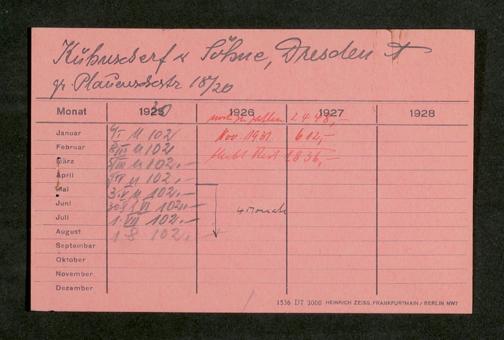 Kühnscherf & Söhne, Dresden A
gr. Plauenschestr 18/20
Monat 1925 30 1926 1927 1928
noch zu zahlen 2 4 48,-
Januar M 102,
Nov. 1931 612,-
Februar M 102
bleibt Rest 1836,-
März M 102,-
April M 102,-
Mai 3. V. M 102,-
Juni VI 102,-
4 Monate
Juli 1. VII 102,-
August 1 8 102,-
September
Oktober
November
Dezember
1536 DT 3000 HEINRICH ZEISS, FRANKFURT/MAIN / BERLIN NW7